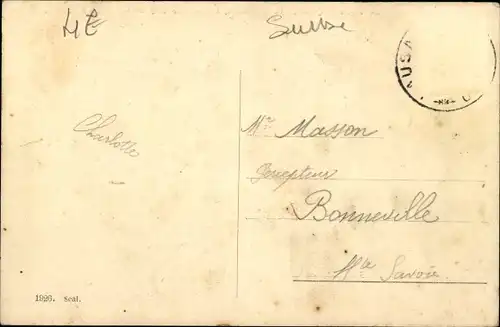 4E
Suisse
AUSA
Charlotte
Mr Masson
Percepteur
Bonneville
Hte Savoie
1926. Seal.